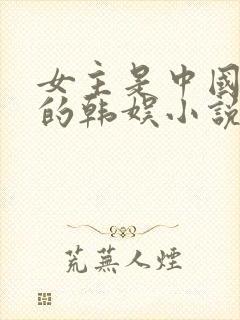 女主是中國
的韩娱小說
荒蕪人煙